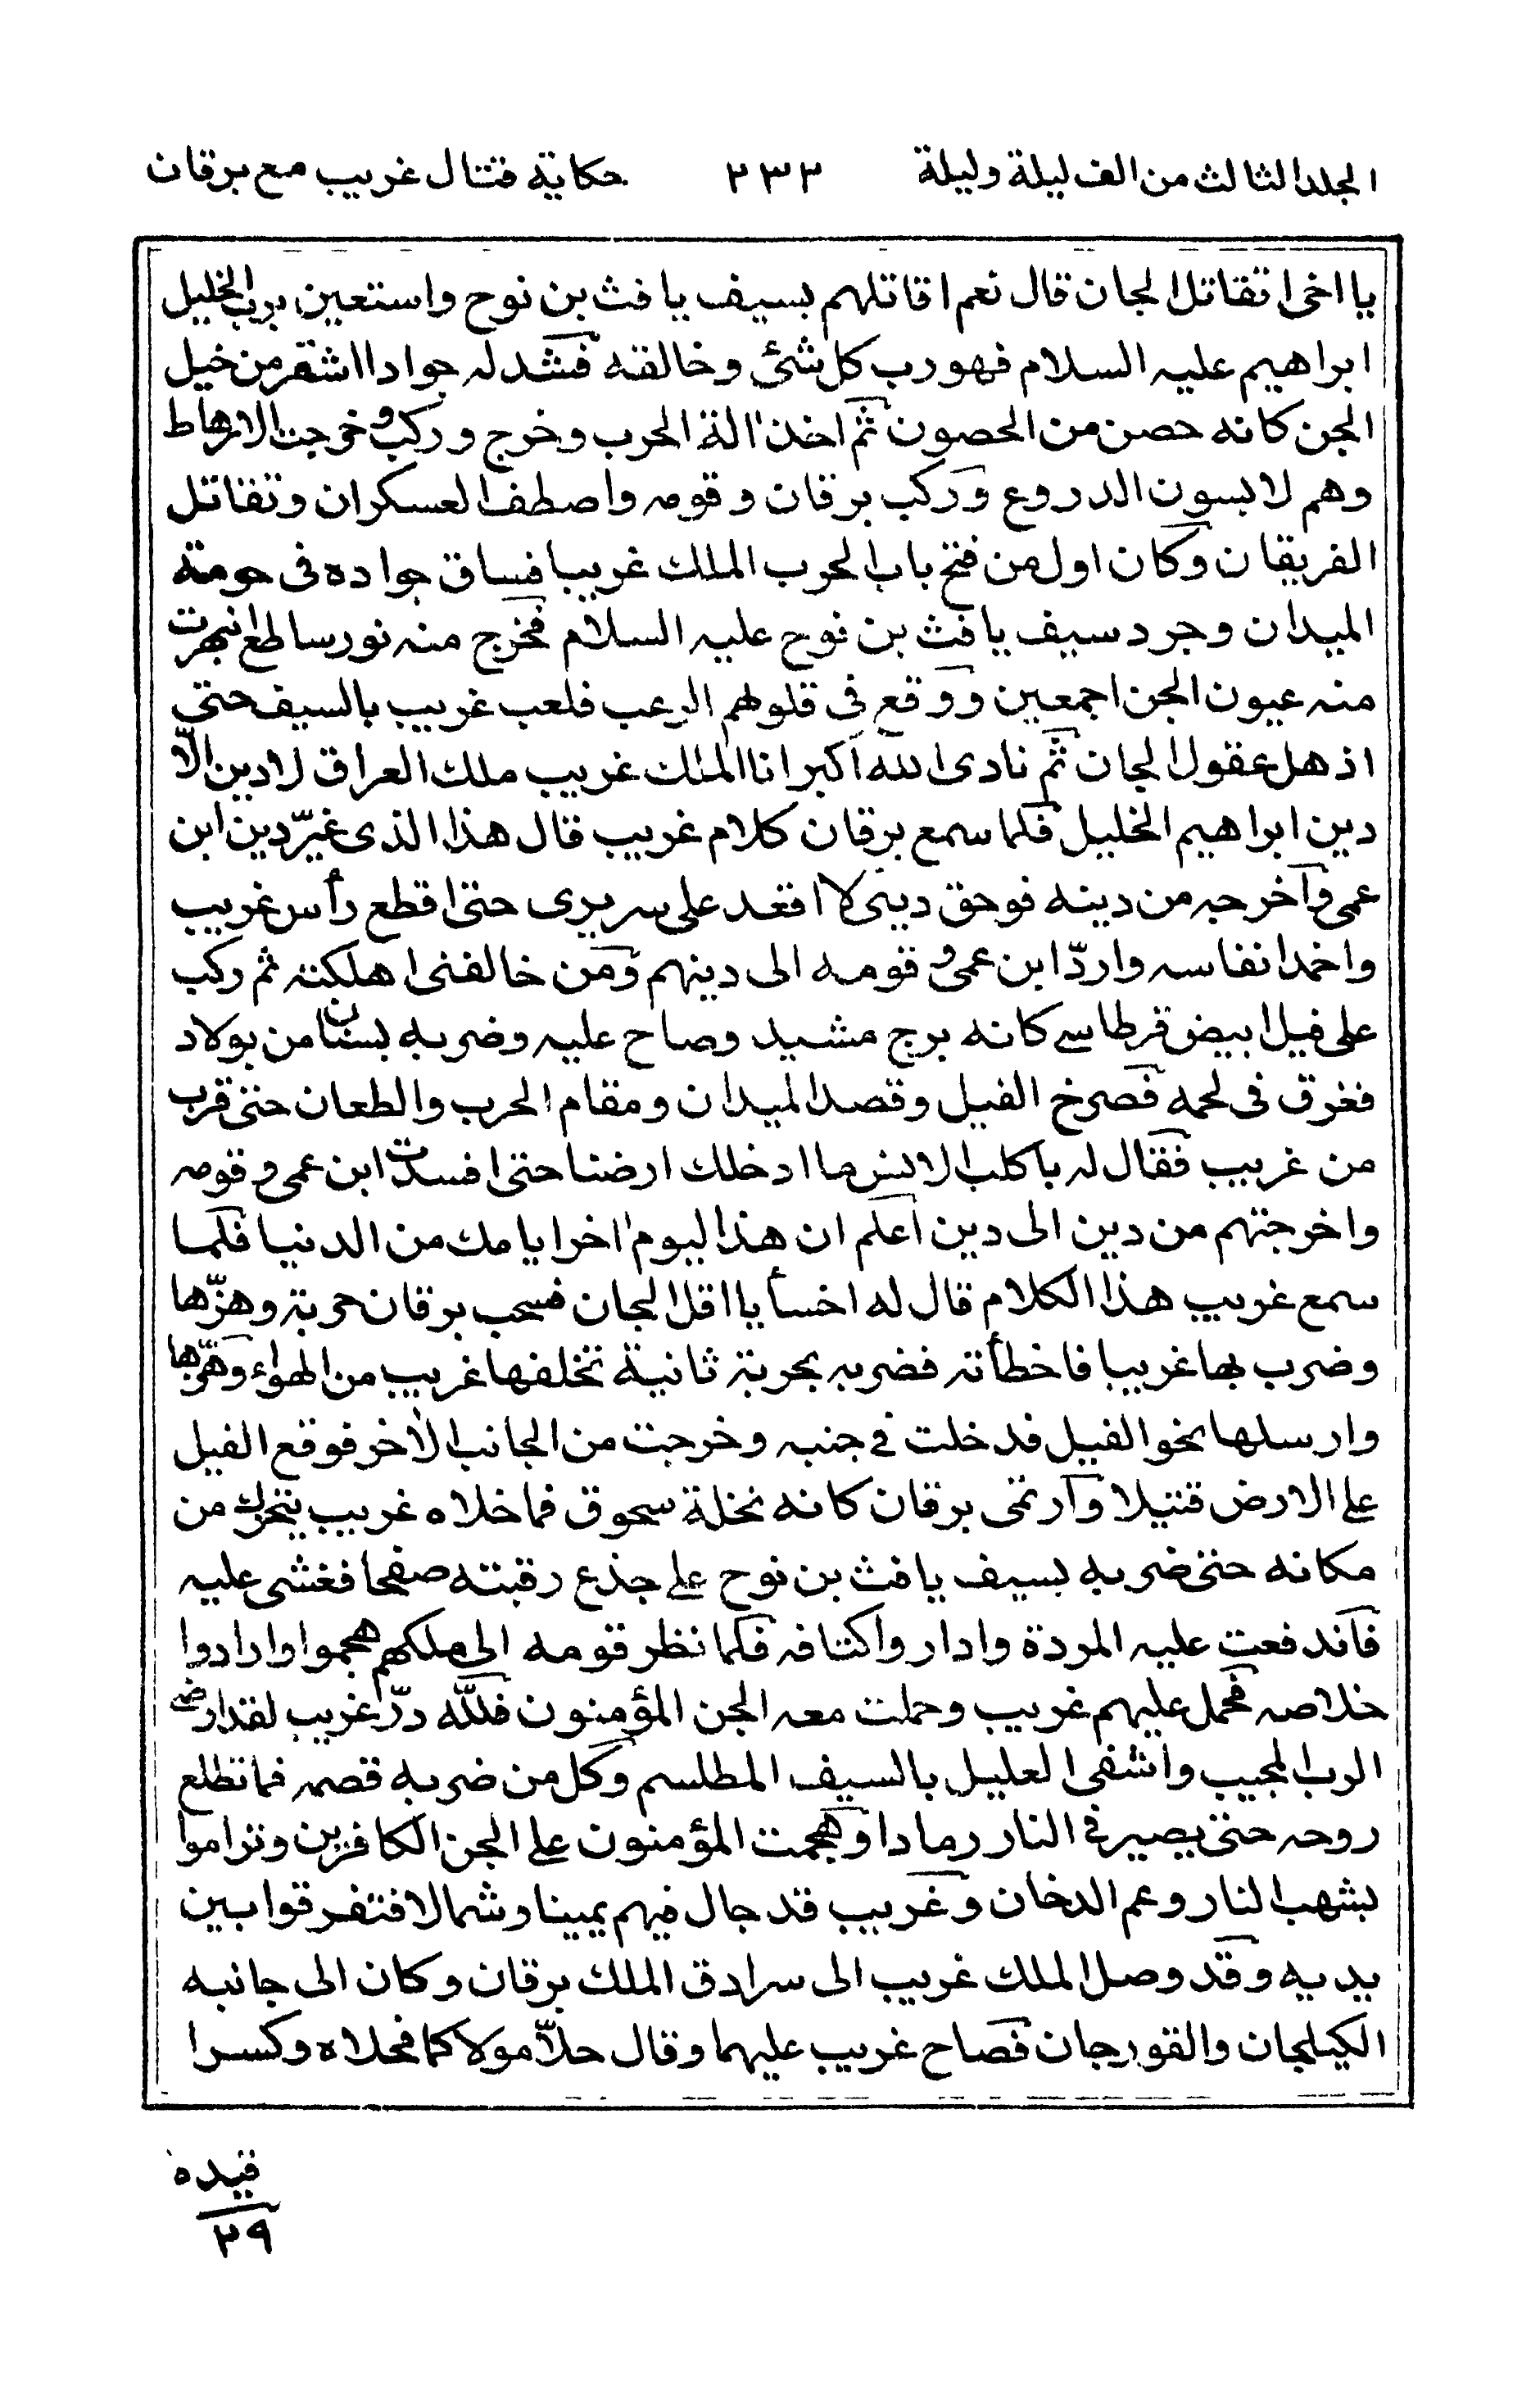 المجلد الثالث من الف ليلة وليلة ٢٣٣ حكاية قتال غريب مع برقان
يا اخى اتقاتل الجان قال نعم اقاتلهم بسيف يافث بن نوح واستعين برب الخليل
ابراهيم عليه السلام فهو رب كل شئ وخالقه فشد له جوادا اشقر من خيل
الجن كانه حصن من الحصون ثم اخذ الة الحرب وخرج وركب وخرجت الارهاط
وهم لابسون الدروع وركب برقان وقومه واصطف العسكران وتقاتل
الفريقان وكان اول من فتح باب الحرب الملك غريبا فساق جواده فى حومة
الميدان وجرد سيف يافث بن نوح عليه السلام فخرج منه نور ساطع انبهرت
منه عيون الجن اجمعين ووقع فى قلوبهم الرعب فلعب غريب بالسيف حتى
اذهل عقول الجان ثم نادى الله اكبر انا الملك غريب ملك العراق لا دين الّا
دين ابراهيم الخليل فلما سمع برقان كلام غريب قال هذا الذى غيّر دين ابن
عمى وآخرجه من دينه فوحق دينى لا اقعد على سريرى حتى اقطع رأس غريب
واخمد انفاسه واردّ ابن عمى وقومه الى دينهم ومن خالفنى اهلكته ثم ركب
على فيل ابيض قرطاسى كانه برج مشيد وصاح عليه وضربه بسنان من بولاد
فغرق فى لحمه فصرخ الفيل وقصد الميدان ومقام الحرب والطعان حتى قرب
من غريب فقال له ياكلب الانس ما ادخلك ارضنا حتى افسدت ابن عمى وقومه
واخرجتهم من دين الى دين اعلم ان هذا اليوم اخر ايامك من الدنيا فلما
سمع غريب هذا الكلام قال له اخسأ يا اقل الجان فسحب برقان حربة وهزّها
وضرب بها غريبا فاخطأته فضربه بحربة ثانية تخلفها غريب من الهواء وهزّها
وارسلها نحو الفيل فدخلت فى جنبه وخرجت من الجانب الاخر فوقع الفيل
على الارض قتيلا وآرتمى برقان كانه نخلة سحوق فما خلاه غريب يتحرك من
مكانه حتى ضربه بسيف يافث بن نوح على جذع رقبته صفحا فغشى عليه
فآندفعت عليه المردة وادار واكتافه فلما نظر قومه الى ملكهم هجموا وارادوا
خلاصه فحمل عليهم غريب وحملت معه الجن المؤمنون فللّه درّ غريب لقد ارضى
الرب المجيب واشفى العليل بالسيف المطلسم وكل من ضربه قصمه فما تطلع
روحه حتى يصير فى النار رمادا وهجمت المؤمنون على الجن الكافرين وتراموا
بشهب النار وعم الدخان وغريب قد جال فيهم يمينا وشمالا فتفرقوا بين
يديه وقد وصل الملك غريب الى سرادق الملك برقان وكان الى جانبه
الكيلجان والقورجان فصاح غريب عليهما وقال حلاّ مولاكما فحلاه وكسرا
قيده
٢٩